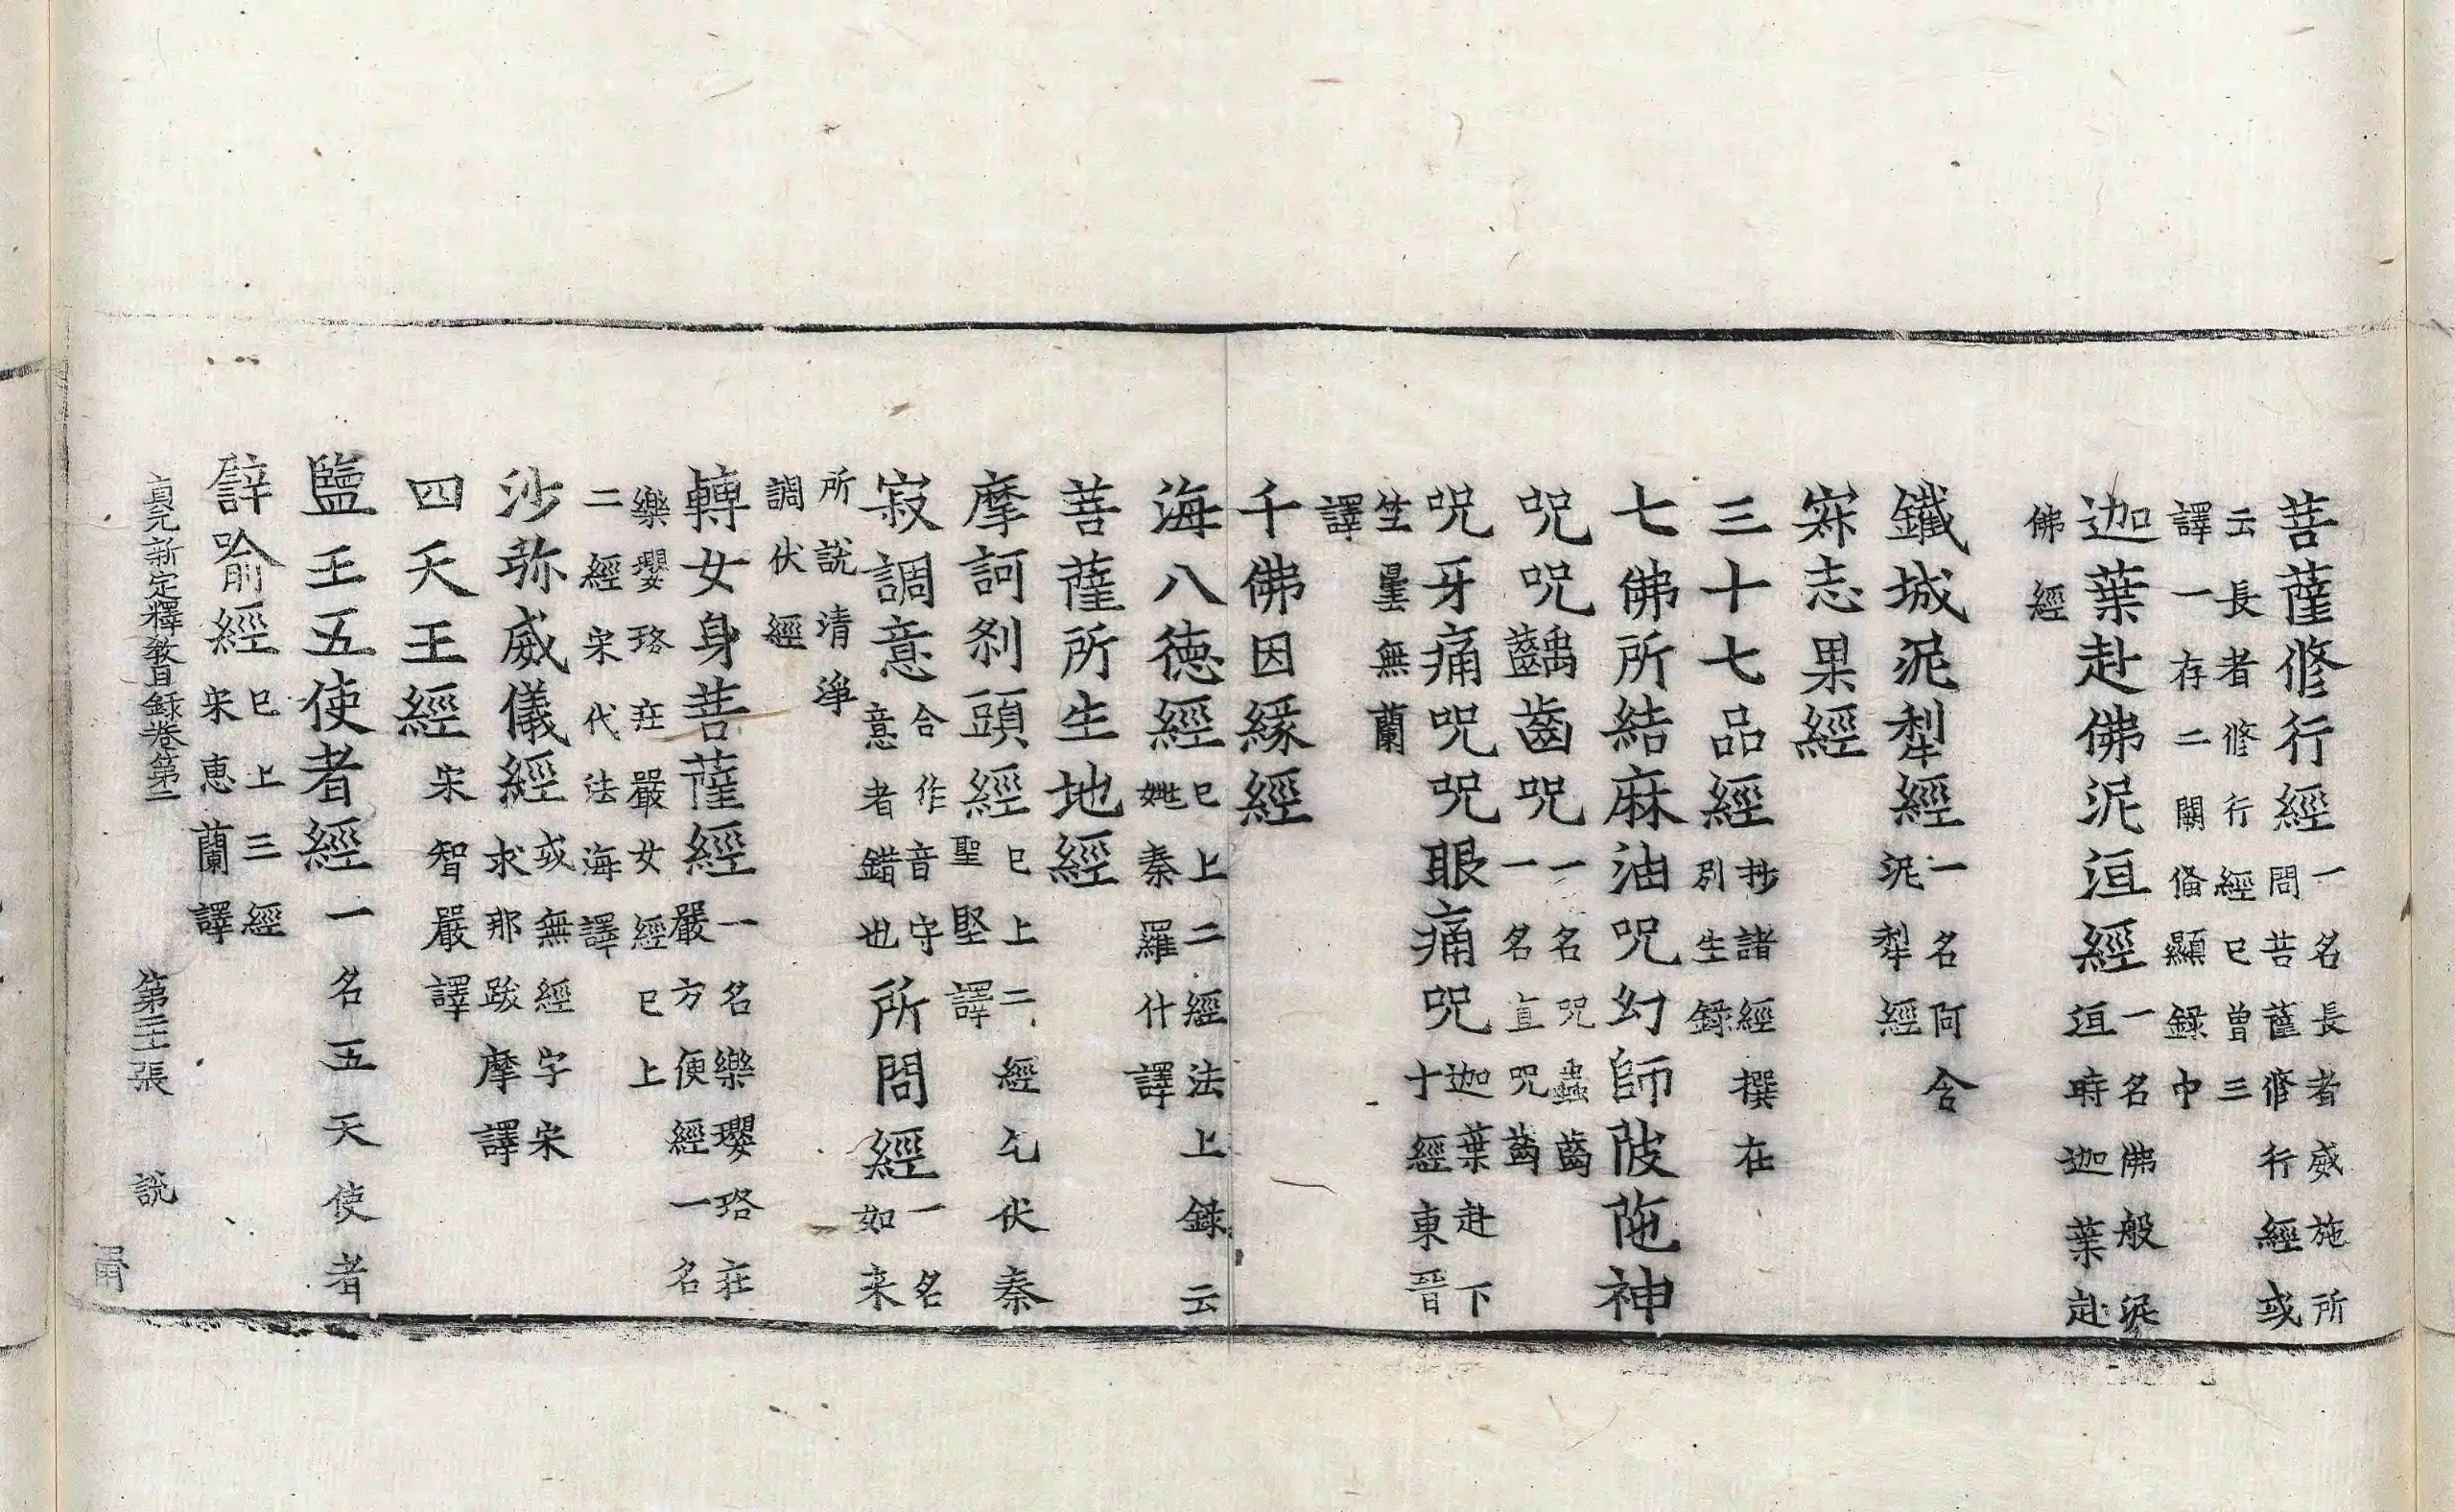 菩薩修行經一名長者威施所
問菩薩修行經或
云長者修行經已曽三
譯一存二闕俻顯録中
迦葉赴佛泥洹經一名佛般泥
洹時迦葉赴
佛經
鐵城泥犁經一名阿含
泥犁經
寀志果經
三十七品經抄諸經撰在
別生錄
七佛所結麻油咒幻師陂陁神
咒咒齲齒咒一名咒蟲齒
一名直咒齒
咒牙痛咒咒眼痛咒迦葉赴下
十經東晉
竺曇無蘭
譯
千佛因緣經
海八德經已上二經法上錄云
姚秦羅什譯
菩薩所生地經
摩訶剎頭經已上二經乞伏秦
聖堅譯
寂調意合作音守
意者錯也所問經一名
如来
所說清淨
調伏經
轉女身菩薩經一名樂瓔珞莊
嚴方便經一名
樂瓔珞莊嚴女經已上
二經宋代法海譯
沙弥威儀經或無經字宋
求那跋摩譯
四天王經宋智嚴譯
鹽王五使者經一名五天使者
譬喻經已上三經
宋惠蘭譯
貞元新定釋教目録卷第二 第二十張 說